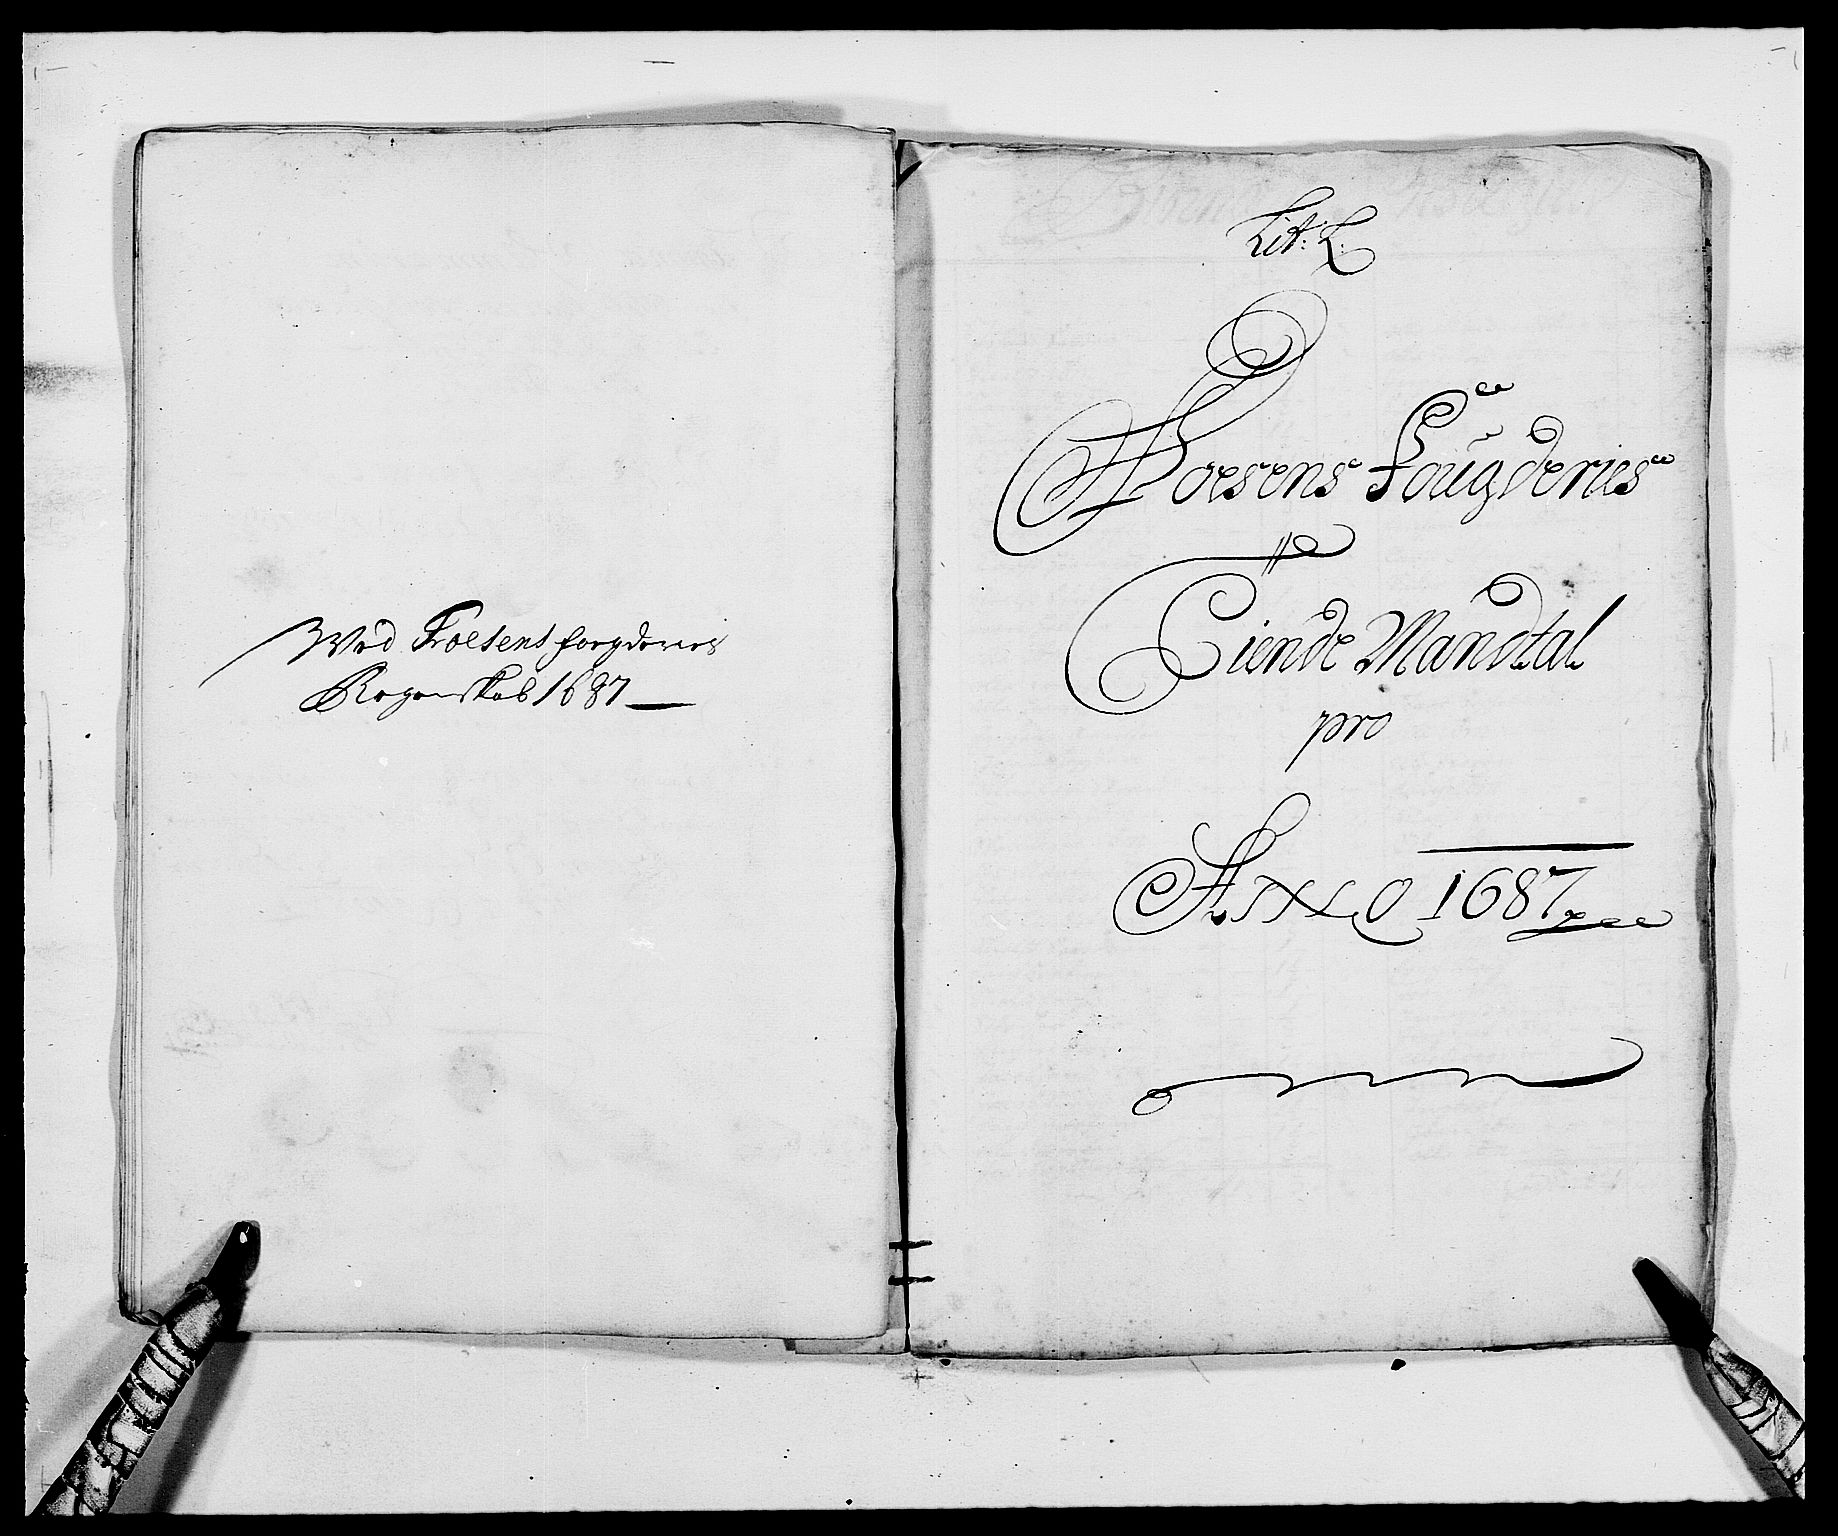 Wed Froesens fougderies
Regenskab 1687
Lit: L.
Froesens Fougderies
Tiende Mandtal
pro
ANNO 1687